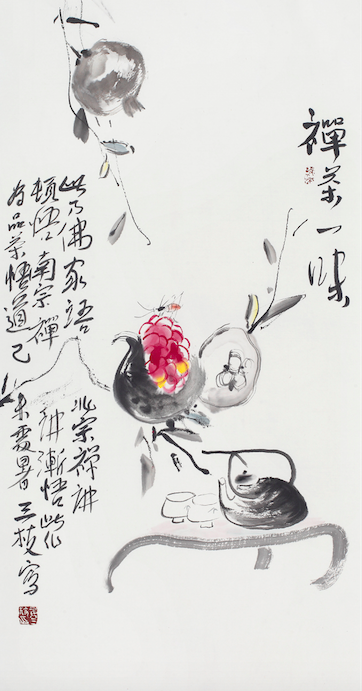 禪茶一味
此乃佛家語北宗禪講
頓悟南宗禪講漸悟此作
為品茶悟道己未暑三枝寫